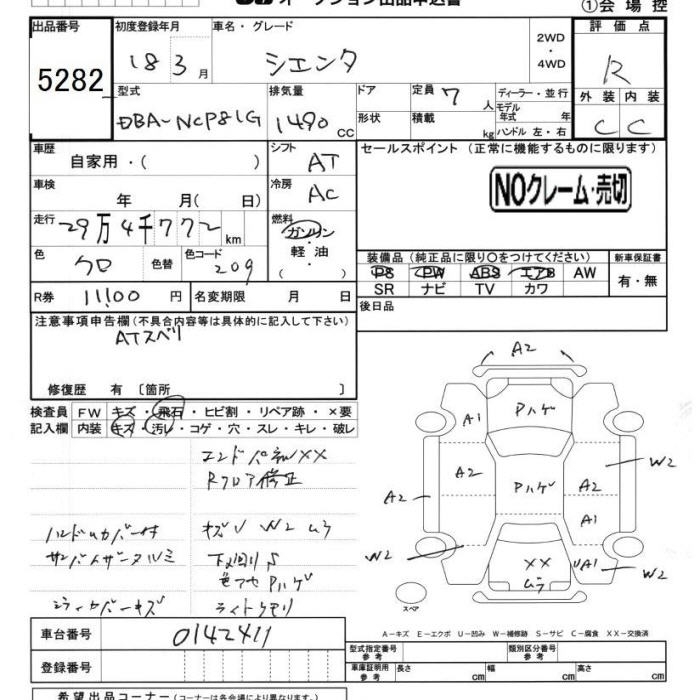 オークション出品申込書
①会場控
出品番号
5282
初度登録年月
18 3月
車名・グレード
シエンタ
2WD
・
4WD
評価点
R
外装 内装
C C
型式
DBA-NCP81G
排気量
1490 CC
ドア
形状
定員 7 人
積載 kg
ディーラー・並行
モデル
年式 年
ハンドル 左・右
車歴
自家用・( )
シフト
AT
車検
年 月( 日)
冷房
AC
走行
29万4千772 km
燃料
ガソリン
・
軽油
( )
色
クロ
色替
色コード
209
R券 11100 円
名変期限 月 日
セールスポイント (正常に機能するものに限ります)
NOクレーム・売切
装備品 (純正品に限り○をつけてください)
PS PW ABS エアB AW
SR ナビ TV カワ
新車保証書
有・無
後日品
注意事項申告欄(不具合内容等は具体的に記入して下さい)
ATスベリ
修復歴 有 〔箇所 〕
検査員
記入欄
FW キズ・飛石・ヒビ割・リペア跡・×要
内装 キズ・汚レ・コゲ・穴・スレ・キレ・破レ
エンドパネXX
Rフロア修正
ハンドルカバー付
キズU W2 ムラ
サンバイザータルミ
下廻りS
色アセPハゲ
シティカバーキズ
ライトクモリ
A2
A1
Pハゲ
W2
A2
A2
Pハゲ
A2
A1
W2
XX
ムラ
UA1
W2
スペア
A−キズ E−エクボ U−凹み W−補修跡 S−サビ C−腐食 XX−交換済
車台番号
0142411
登録番号
型式指定番号
参考
類別区分番号
参考
車庫証明用
参考
長さ cm
幅 cm
高さ cm
希望出品コーナー (コーナーは各会場により異なります。)